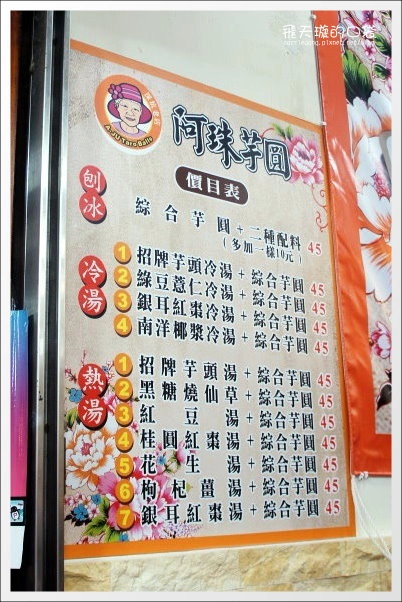 飛天璇的口袋
阿珠芋圓
A-JU Taro Balls
價目表
刨冰
綜合芋圓+二種配料 45
(多加一樣10元)
冷湯
1 招牌芋頭冷湯+綜合芋圓 45
2 綠豆薏仁冷湯+綜合芋圓 45
3 銀耳紅棗冷湯+綜合芋圓 45
4 南洋椰漿冷湯+綜合芋圓 45
熱湯
1 招牌芋頭湯+綜合芋圓 45
2 黑糖燒仙草+綜合芋圓 45
3 紅豆湯+綜合芋圓 45
4 桂圓紅棗湯+綜合芋圓 45
5 花生湯+綜合芋圓 45
6 枸杞薑湯+綜合芋圓 45
7 銀耳紅棗湯+綜合芋圓 45